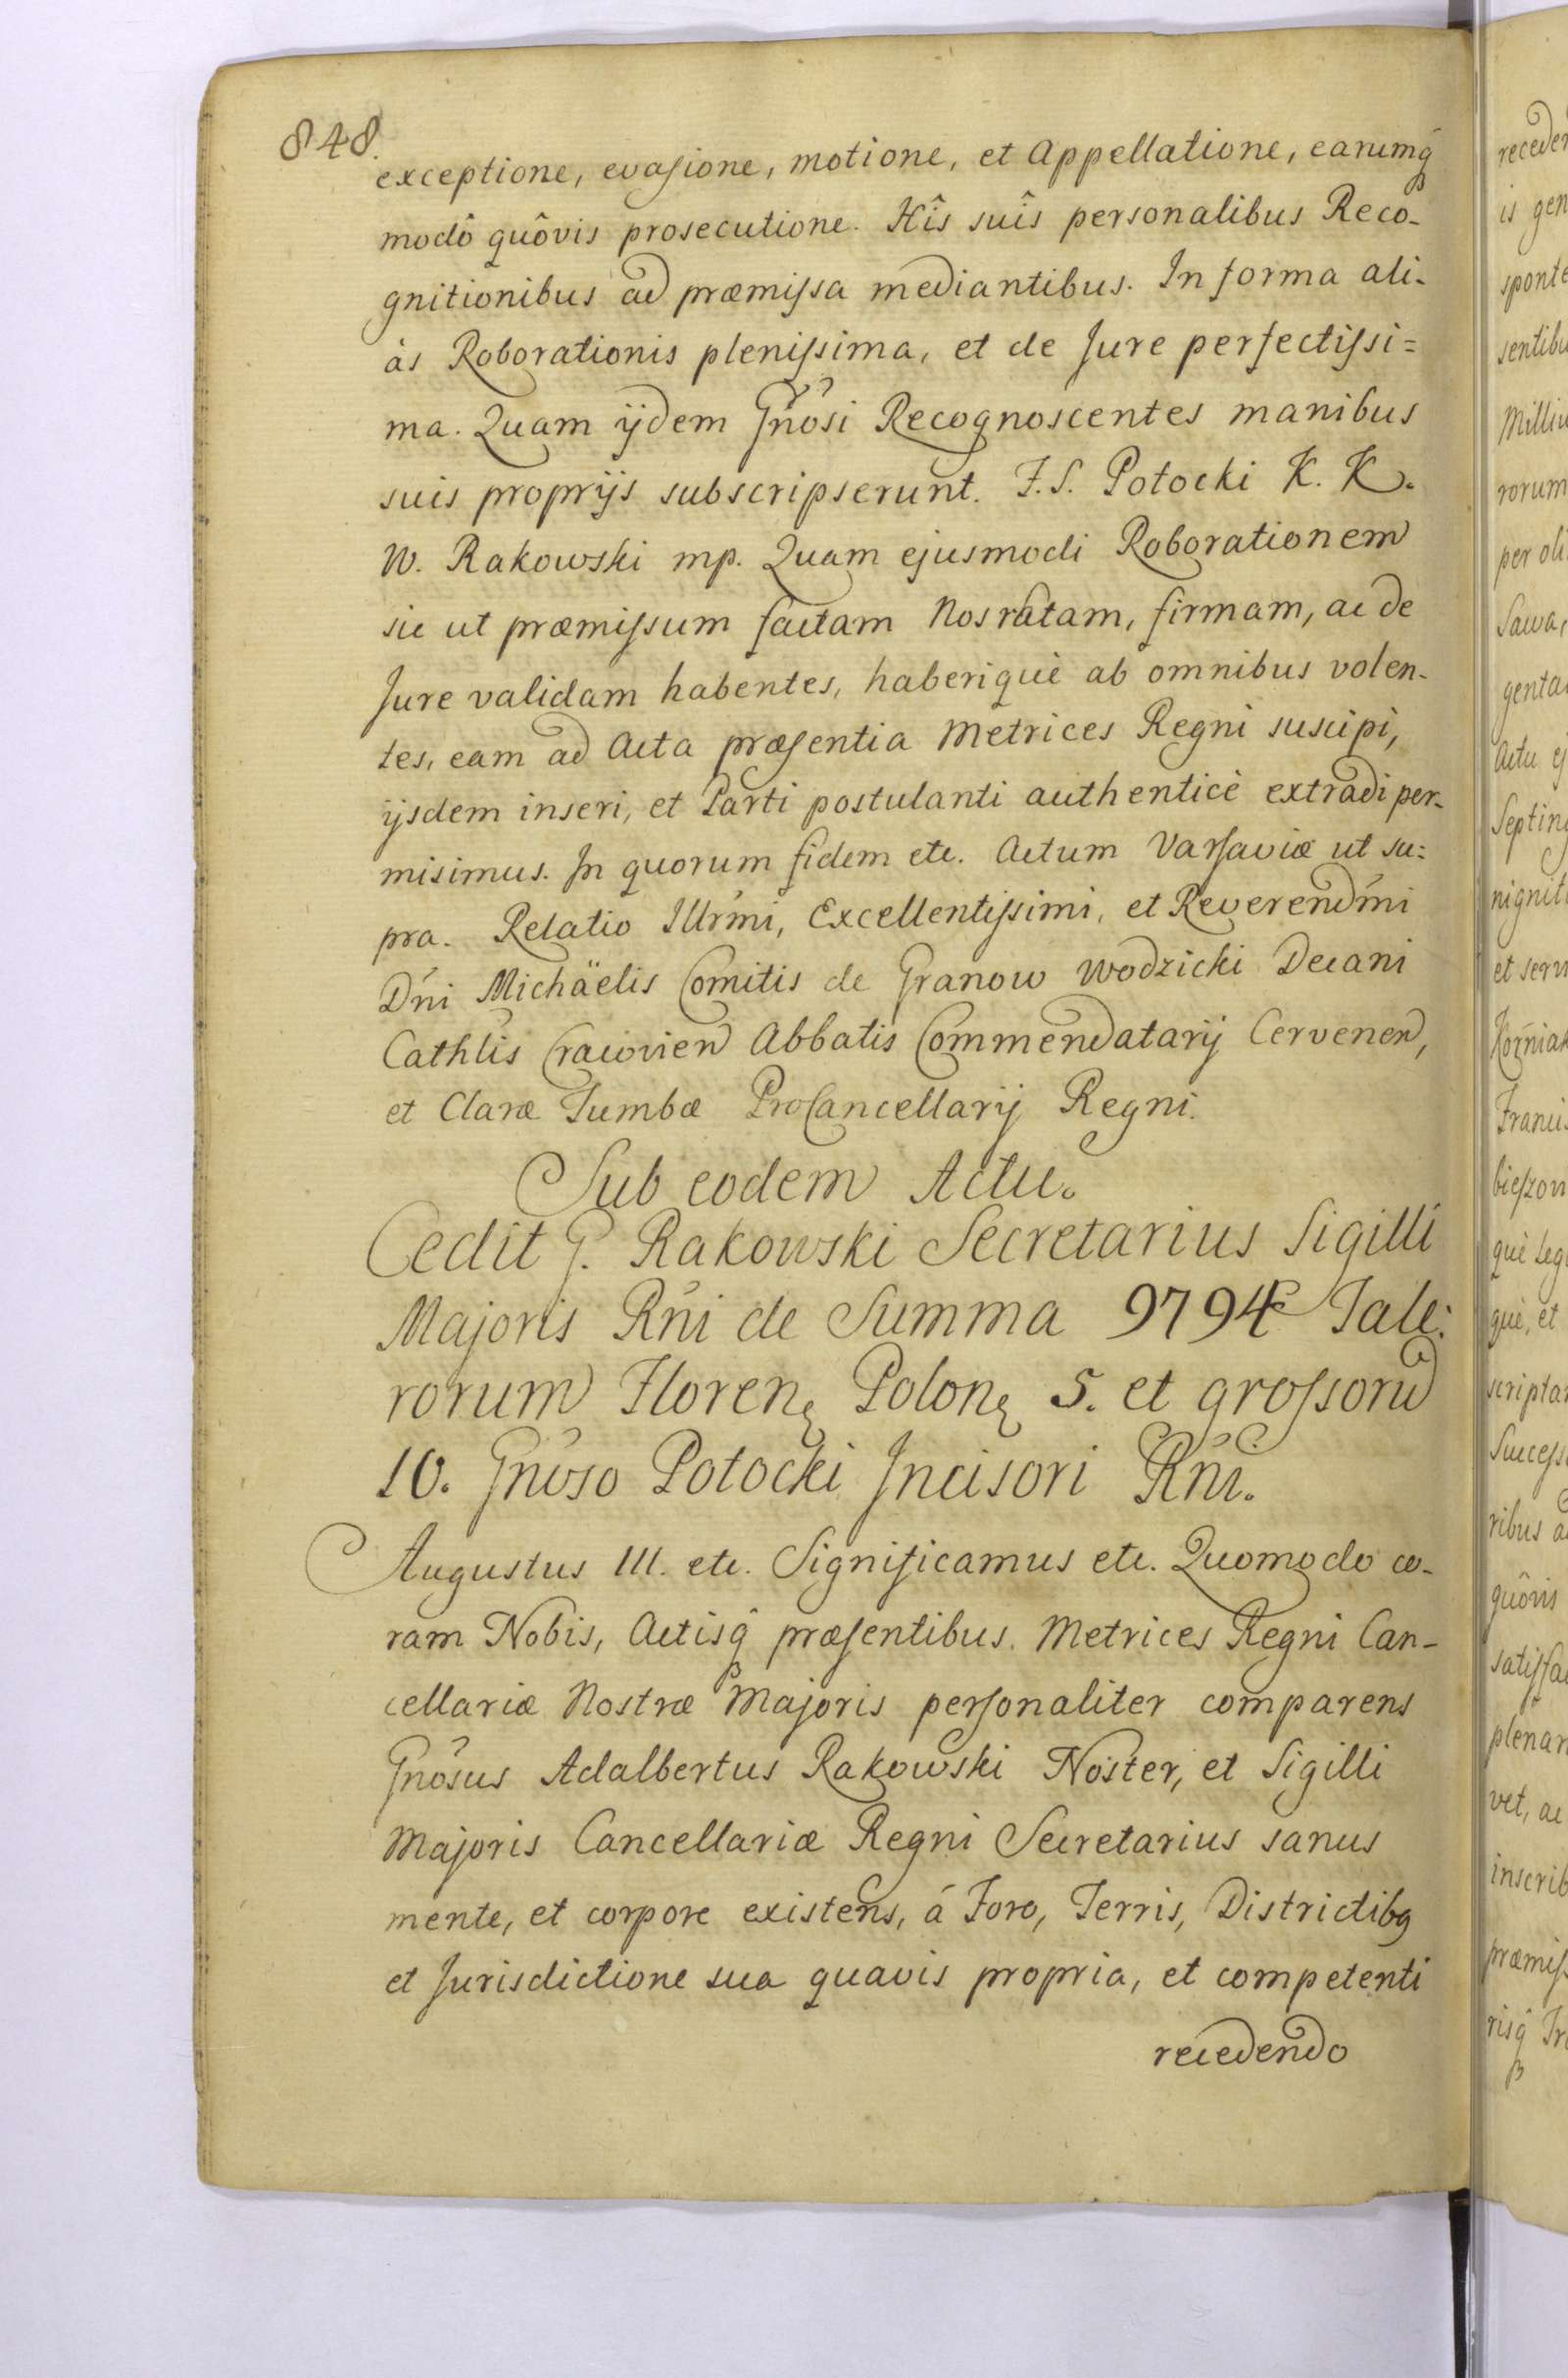 848.
exceptione, evasione, motione, et Appellatione, earumq́
modô quôvis prosecutione. Hîs suîs personalibus Reco-
gnitionibus ad præmissa mediantibus. In forma ali-
às Roborationis plenissima, et de Jure perfectissi=
ma. Quam ijdem Gnosi Recognoscentes manibus
suis proprijs subscripserunt. F.S. Potocki K. K.
W. Rakowski mp. Quam ejusmodi Roborationem
sic ut præmissum factam Nos ratam, firmam, ac de
Jure validam habentes, haberiquè ab omnibus volen-
tes, eam ad Acta præsentia Metrices Regni suscipi,
ijsdem inseri, et Parti postulanti authenticè extradi per-
misimus. In quorum fidem etc. Actum Varsaviæ ut su=
pra. Relatio Illrmi, Excellentissimi, et Reverendmi
Dni Michäelis Comitis de Granow Wodzicki Decani
Cathlis Cracovien Abbatis Commendatarij Cervenen,
et Claræ Tumbæ ProCancellarij Regni.
Sub eodem Actu.
Cedit G. Rakowski Secretarius Sigilli
Majoris Rni de Summa 9794 Tale:
rorum Floren, Polon, 5. et grossorū
10. Gnoso Potocki Incisori Rni.
Augustus III. etc. Significamus etc. Quomodo co-
ram Nobis, Actisq̂ præsentibus. Metrices Regni Can-
cellariæ Nostræ Majoris personaliter comparens
Gnosus Adalbertus Rakowski Noster, et Sigilli
Majoris Cancellariæ Regni Secretarius sanus
mente, et corpore existens, á Foro, Terris, Districtibq
et Jurisdictione sua quavis propria, et competenti
recedendo